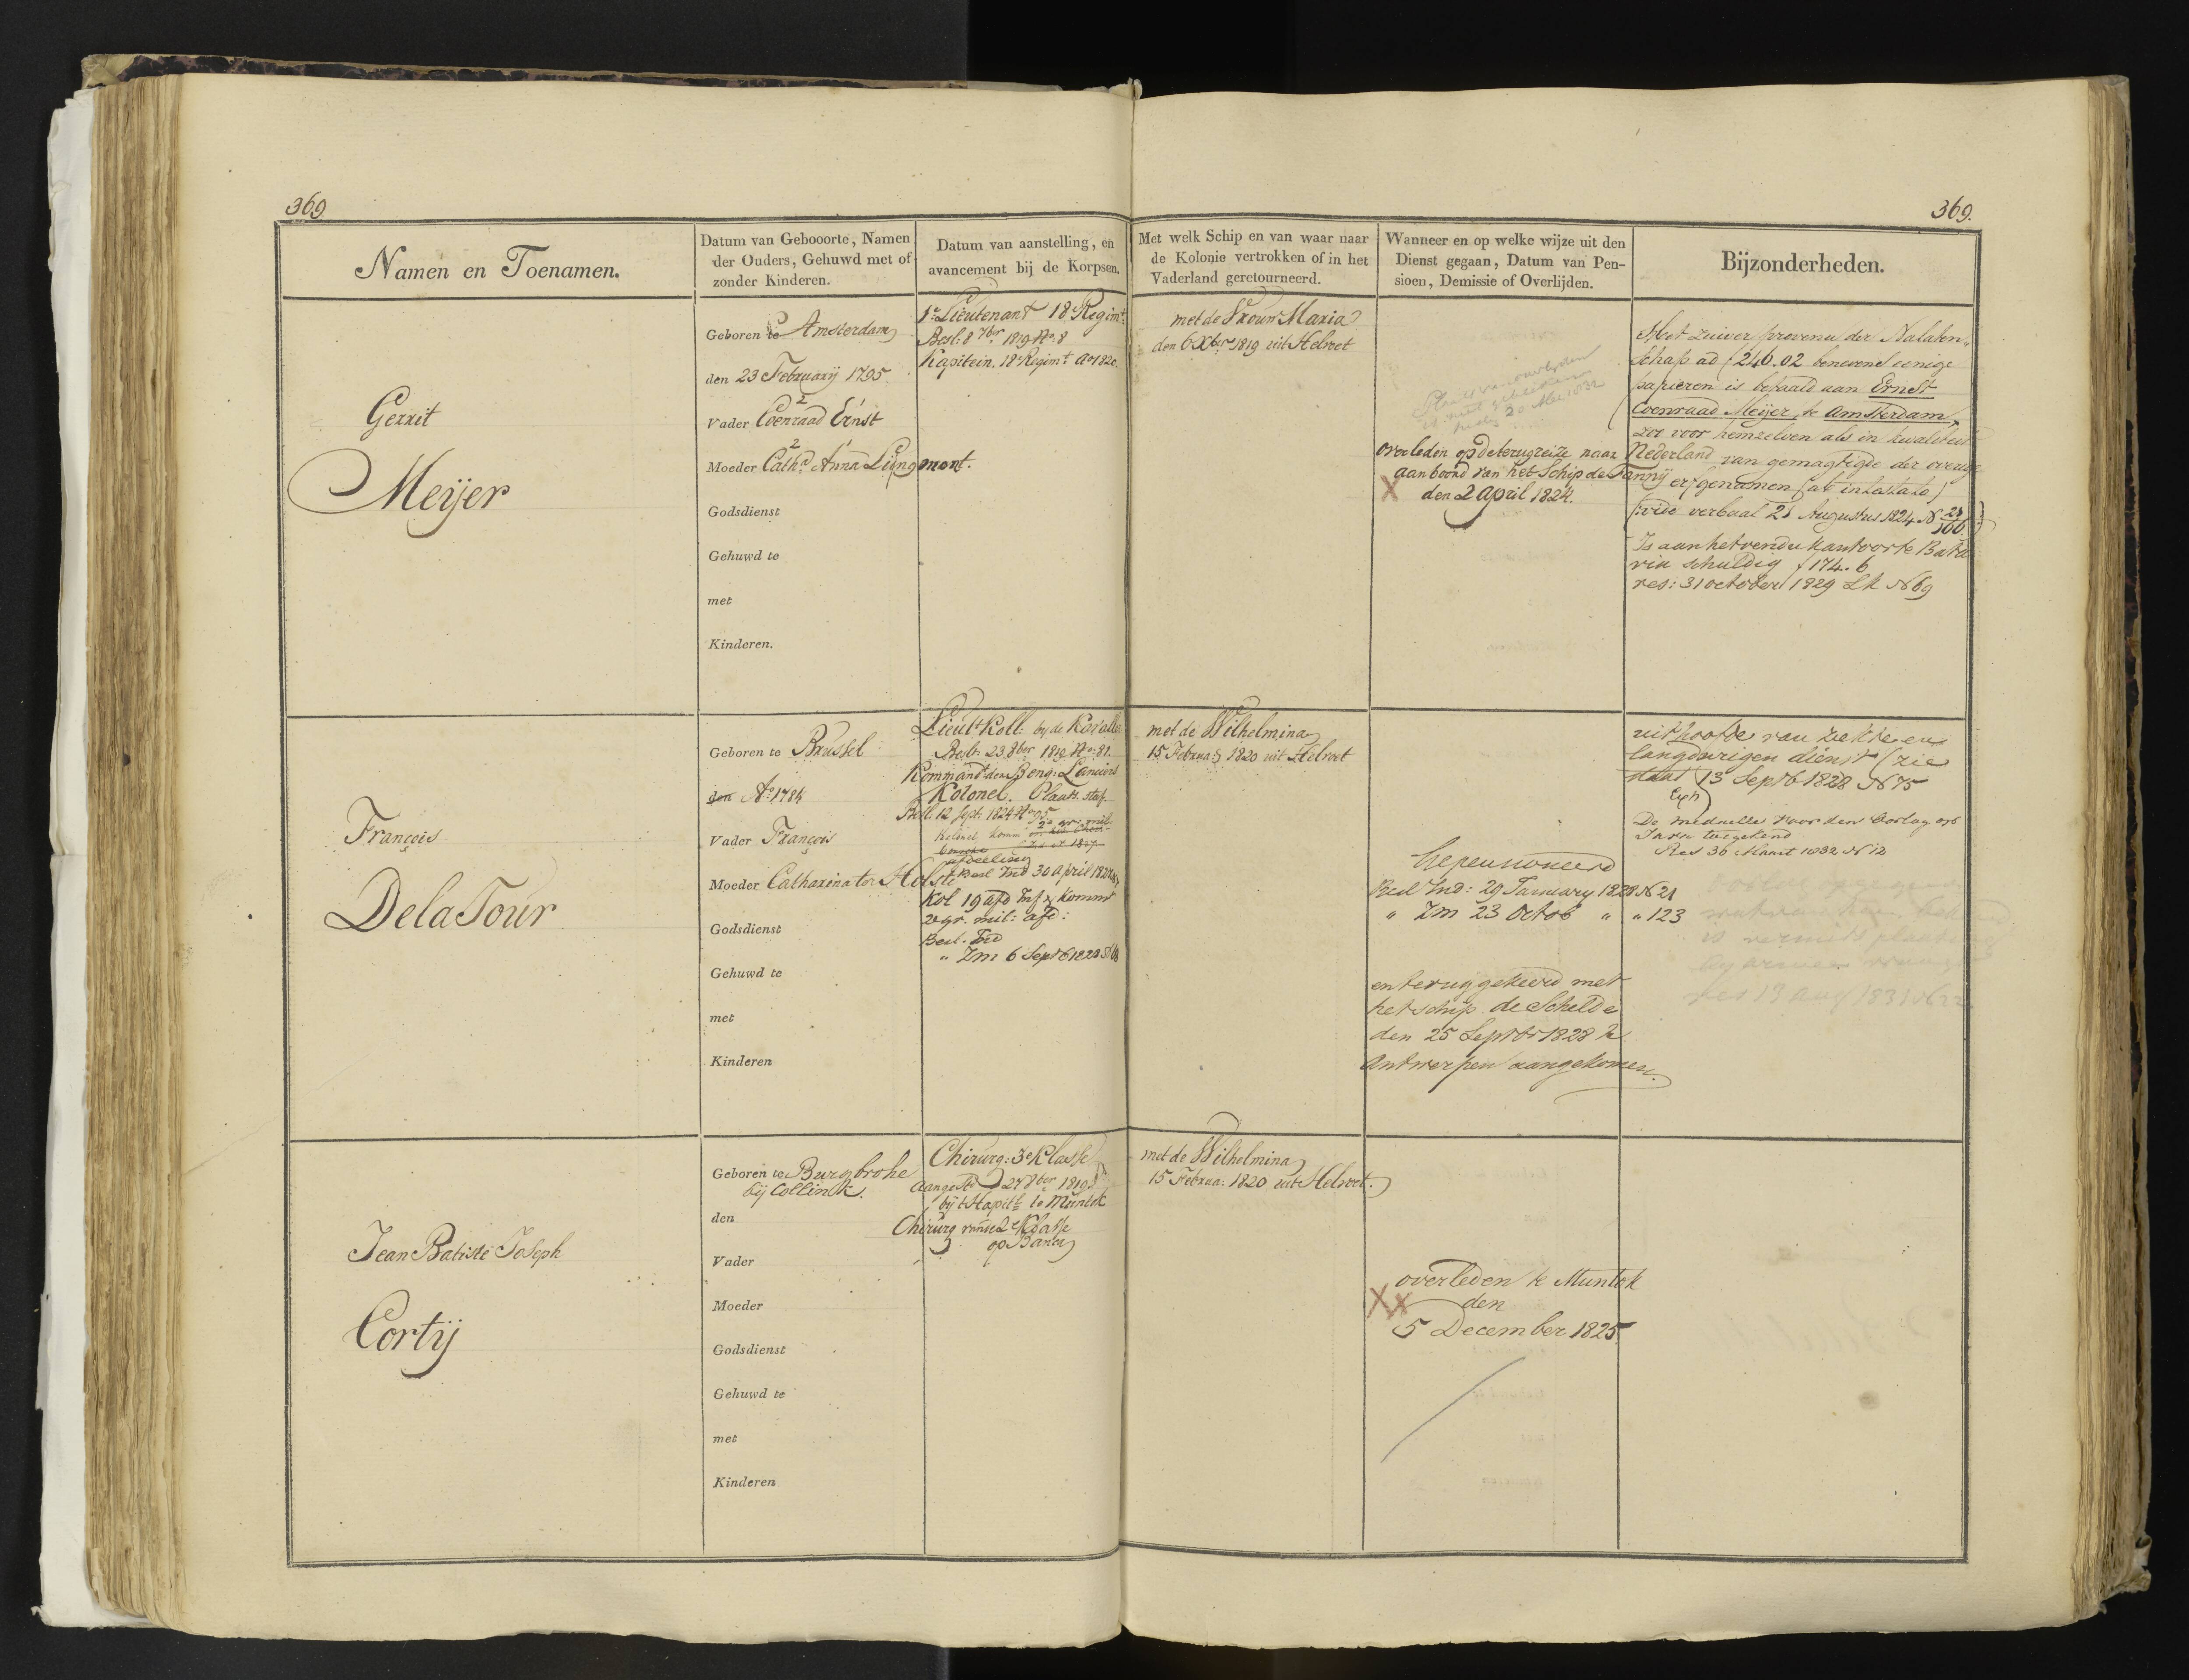 369.
369.
Namen en Toenamen.
Datum van Gebooorte, Namen
der Ouders, Gehuwd met of
zonder Kinderen.
Datum van aanstelling, en
avancement bij de Korpsen.
Met welk Schip en van waar naar
de Kolonie vertrokken of in het
Vaderland geretourneerd.
Wanneer en op welke wijze uit den
Dienst gegaan, Datum van Pen-
sioen, Demissie of Overlijden.
Bijzonderheden.
Gerrit
Meijer
Geboren te Amsterdam
den 23 Februarij 1795
Vader Coenraad Ernst
Moeder Cath.a Anna Liongmont.
Godsdienst
Gehuwd te
met
Kinderen.
1e Lieutenant 18 Regimt.
Besl: 8 7ber 1819 No. 8
Kapitein. 18e Regimt ao 1820.
met de Vrouw Maria
den 6 Xber 1819 uit Helvoet
20 Mei 1832
overleden op de terugreize naar Nederland
aan boord van het Schip de Fannij
X den 2 april 1824.
Het zuiver provenu der Nalaten-
schap ad ƒ 240.02 benevens eenige
papieren is betaald aan Ernst
Coenraad Meijer te Amsterdam,
zoo voor hemzelven als in kwaliteit
van gemagtigde der overige
erfgenamen (ab intestato)
(vide verbaal 21 Augustus 1824 N 24/106.)
Is aan het vendu kantoor te Bata
via schuldig ƒ 174.6
res: 31 october 1829 Lk N 69
François
De la Tour
Geboren te Brussel
den Ao. 1784
Vader François
Moeder Catharina ter Holste
Godsdienst
Gehuwd te
met
Kinderen
Lieut Koll: by de Kavalle
Beslt: 23 8ber 1819 No. 81.
Kommandt der Beng: Lanciers
Kolonel. Plaats. staf.
Besl: 12 Sept: 1824 No 5
Kolonel komm 2e gr. mil:
afdeeling
Besl Ind 30 april 1827
Kol 19 afd Inf & Komm
2e gr. mil: afd:
Besl. Ind
" Zm 6 Septb 1828 N 68
met de Wilhelmina
15 Februa: 1820 uit Helvoet
Gepensioneerd
Besl Ind: 29 January 1828 N 21
" Zm 23 Octob " " 123
en teruggekeerd met
het schip de Schelde
den 25 Septbr 1828 te
Antwerpen aangekomen.
uithoofde van ziekte en
langdurigen dienst (zie
staat 13 Septb 1828 N 75
Exh)
De medaille voor den Oorlog op
Java toegekend
Res 30 Maart 1832 N 12
res 13 aug 1831 N 22
Jean Batiste Joseph
Cortij
Geboren te Burgbrohe
bij Collinck.
den
Vader
Moeder
Godsdienst
Gehuwd te
met
Kinderen
Chirurg: 3e Klasse
aangestd 27 8ber 1819
bij 't Hospitl: te Muntok
Chirurg van de 2e Klasse
op Banca
met de Wilhelmina
15 Februa: 1820 uit Helvoet.
overleden te Muntok
XX den
5 December 1825